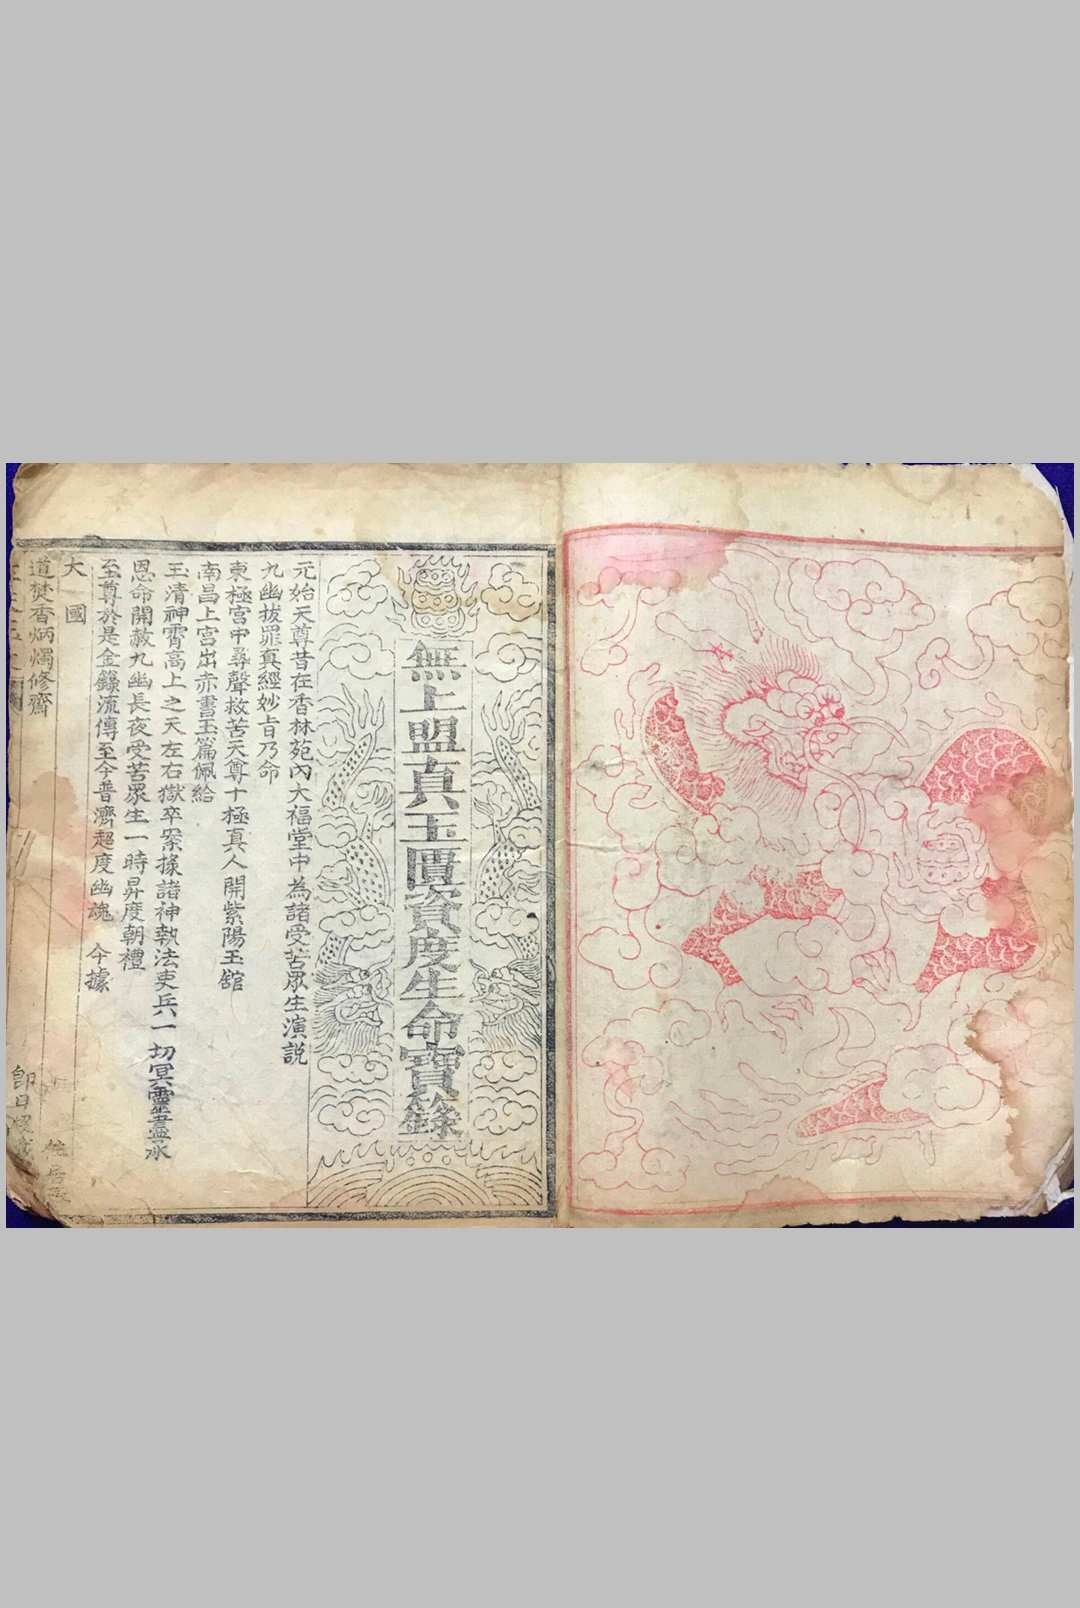 無上盟真玉匱資度生命寶籙
元始天尊昔在香林苑內大福堂中為諸受苦眾生演説
九幽拔罪真經妙旨乃命
東極宮中尋聲救苦天尊十極真人開紫陽玉舘
南昌上宮出赤書玉篇佩給
玉清神霄高上之天左右獄卒案據諸神執法吏兵一切冥靈盡承
恩命開赦九幽長夜受苦眾生一時昇度朝禮
至尊於是金籙流傳至今普濟超度幽魂 今據
大 國
道焚香炳燭修齋